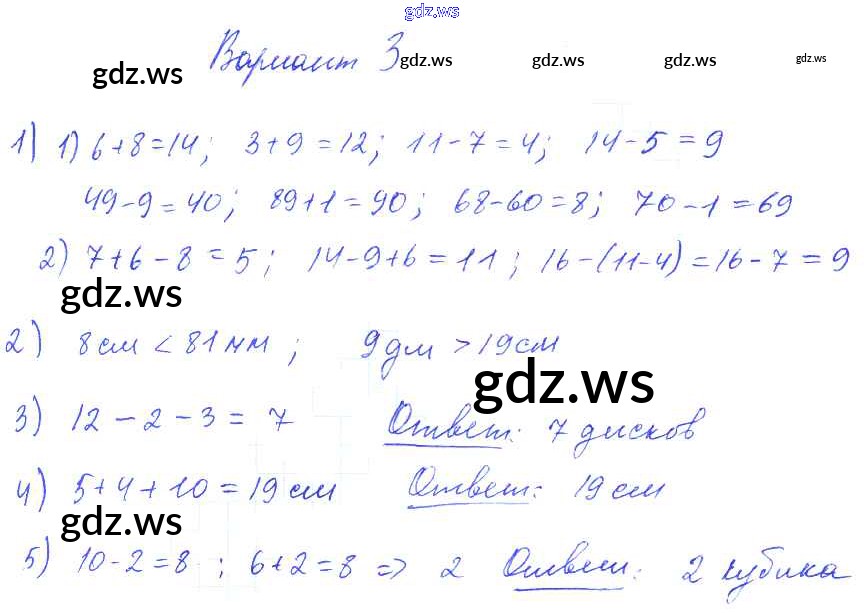 gdz.ws
Вариант 3
gdz.ws gdz.ws gdz.ws gdz.ws gdz.ws
1) 1) 6+8=14; 3+9=12; 11-7=4; 14-5=9
49-9=40; 89+1=90; 68-60=8; 70-1=69
2) 7+6-8=5; 14-9+6=11; 16-(11-4)=16-7=9
gdz.ws
2) 8см < 81мм; 9дм > 19см
gdz.ws
3) 12-2-3=7 Ответ: 7 дисков
4) 5+4+10=19см Ответ: 19см
gdz.ws
5) 10-2=8; 6+2=8 => 2 Ответ: 2 кубика